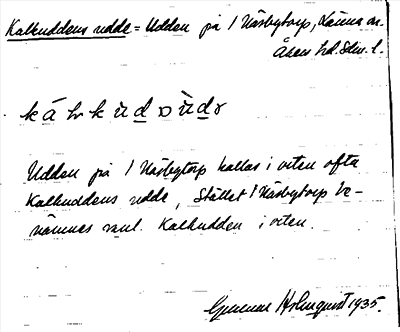 Kalkuddens udde = Udden på 1 Näsbytorp, Länna sn.
Åkers hd. Sdm. l.
Udden på 1 Näsbytorp kallas i orten ofta
Kalkuddens udde, Stället 1 Näsbytorp be-
nämnes vanl. Kalkudden i orten.
Gunnar Holmquist 1935.